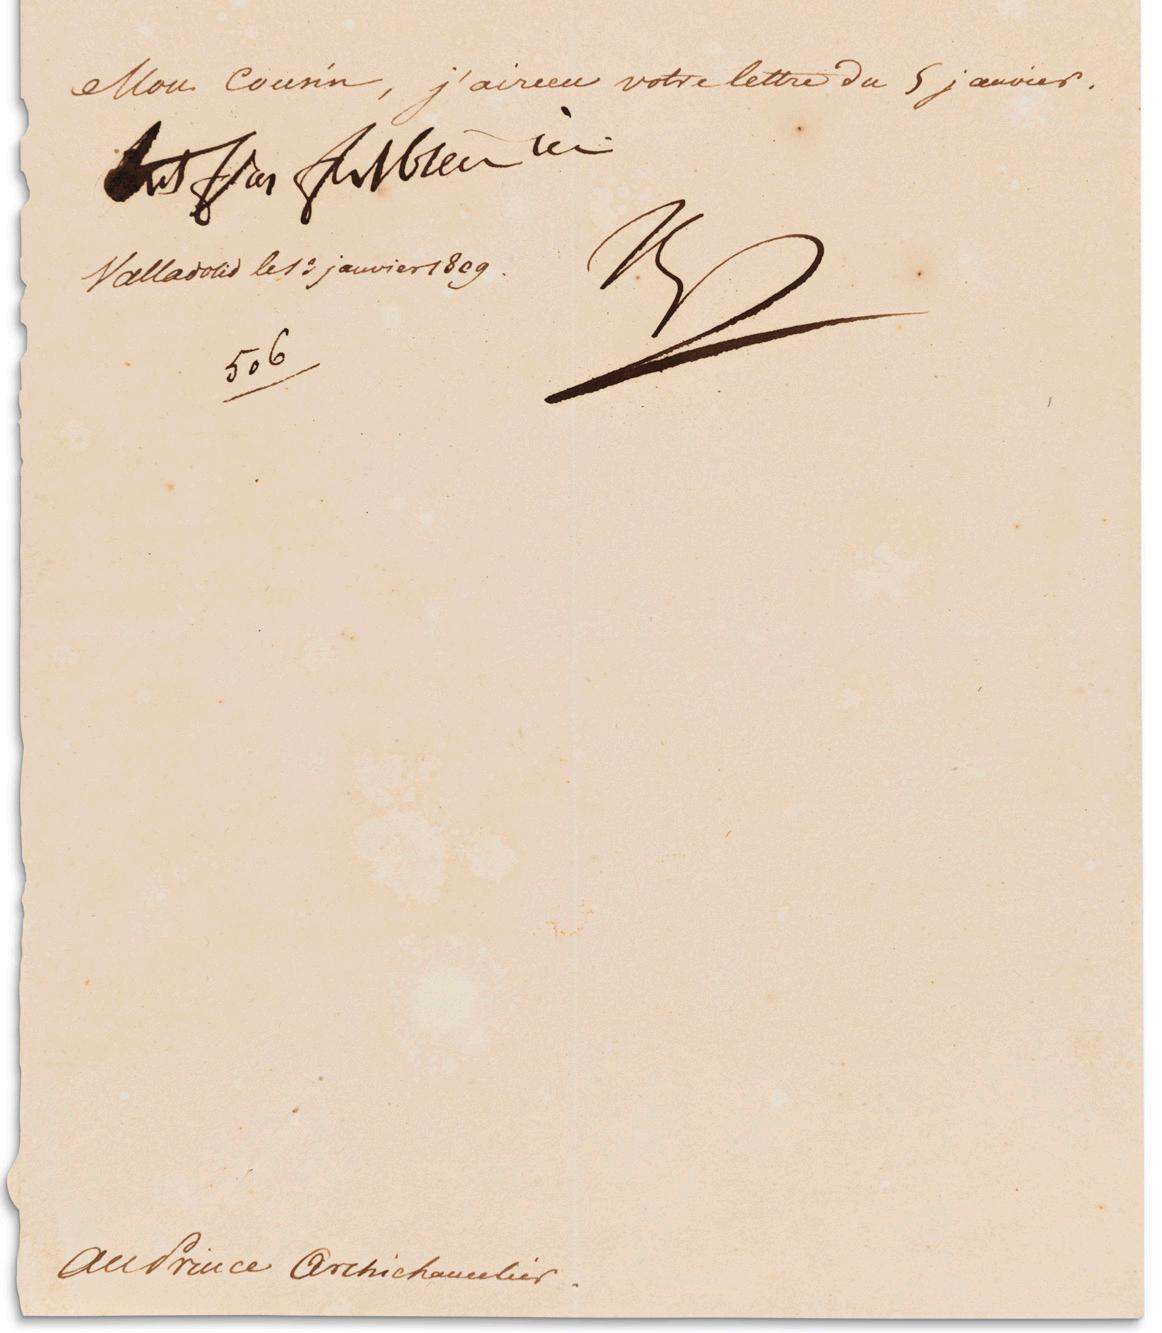 Mon Cousin, j'ai reçu votre lettre du 5 janvier.
Tout
Valladolid le 13 janvier 1809.
506
Au Prince Archichancelier.